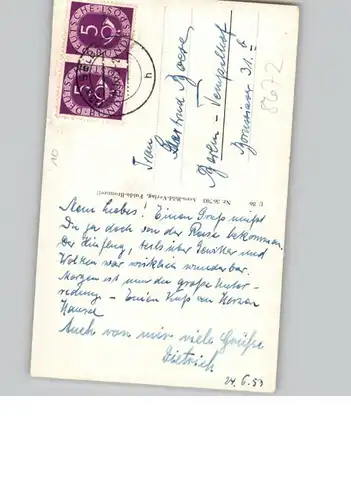 DEUTSCHE BUNDESPOST
5
DEUTSCHE BUNDESPOST
5
h
Frau
Gertrud Boese
Berlin - Tempelhof
Borussiastr. 31. b
8672
10
Nr. 36 703 Aero-Bild-Verlag, Fulda-Bronnzell U 86
Mein Liebes! Einen Gruß mußt
Du ja doch von der Reise bekommen.
Der Hinflug, teils über Gewitter und
Wolken war wirklich wunderbar.
Morgen ist nun die große Unter-
redung - Einen Kuß von Herzen
Auch von mir viele Grüße
Dietrich
24.6.53